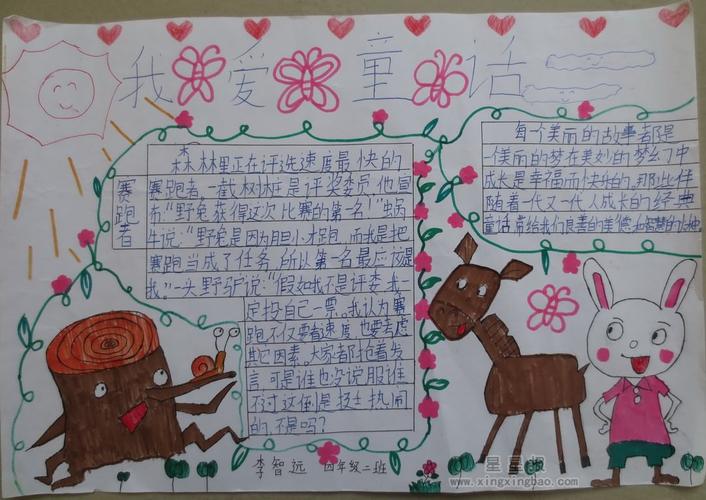 我爱童话
赛跑者
森林里正在评选速度最快的
赛跑者。一截树桩是评奖委员他宣
布“野兔获得这次比赛的第一名!”蜗
牛说:“野兔是因为胆小才跑,而我是把
赛跑当成了任务,所以第一名最应该是
我。”一头野驴说:“假如我不是评委,我一
定投自己一票。我认为赛
跑不仅要看速度,也要考虑
其它因素。大家都抢着发
言,可是谁也没说服谁
不过这倒是挺热闹
的,不是吗?
李智远 四年级二班
每个美丽的故事都是
一个美丽的梦在美妙的梦幻中
成长是幸福而快乐的。那些伴
随着一代又一代人成长的经典
童话带给我们良善的美德和智慧的
星星报
www.xingxingbao.com